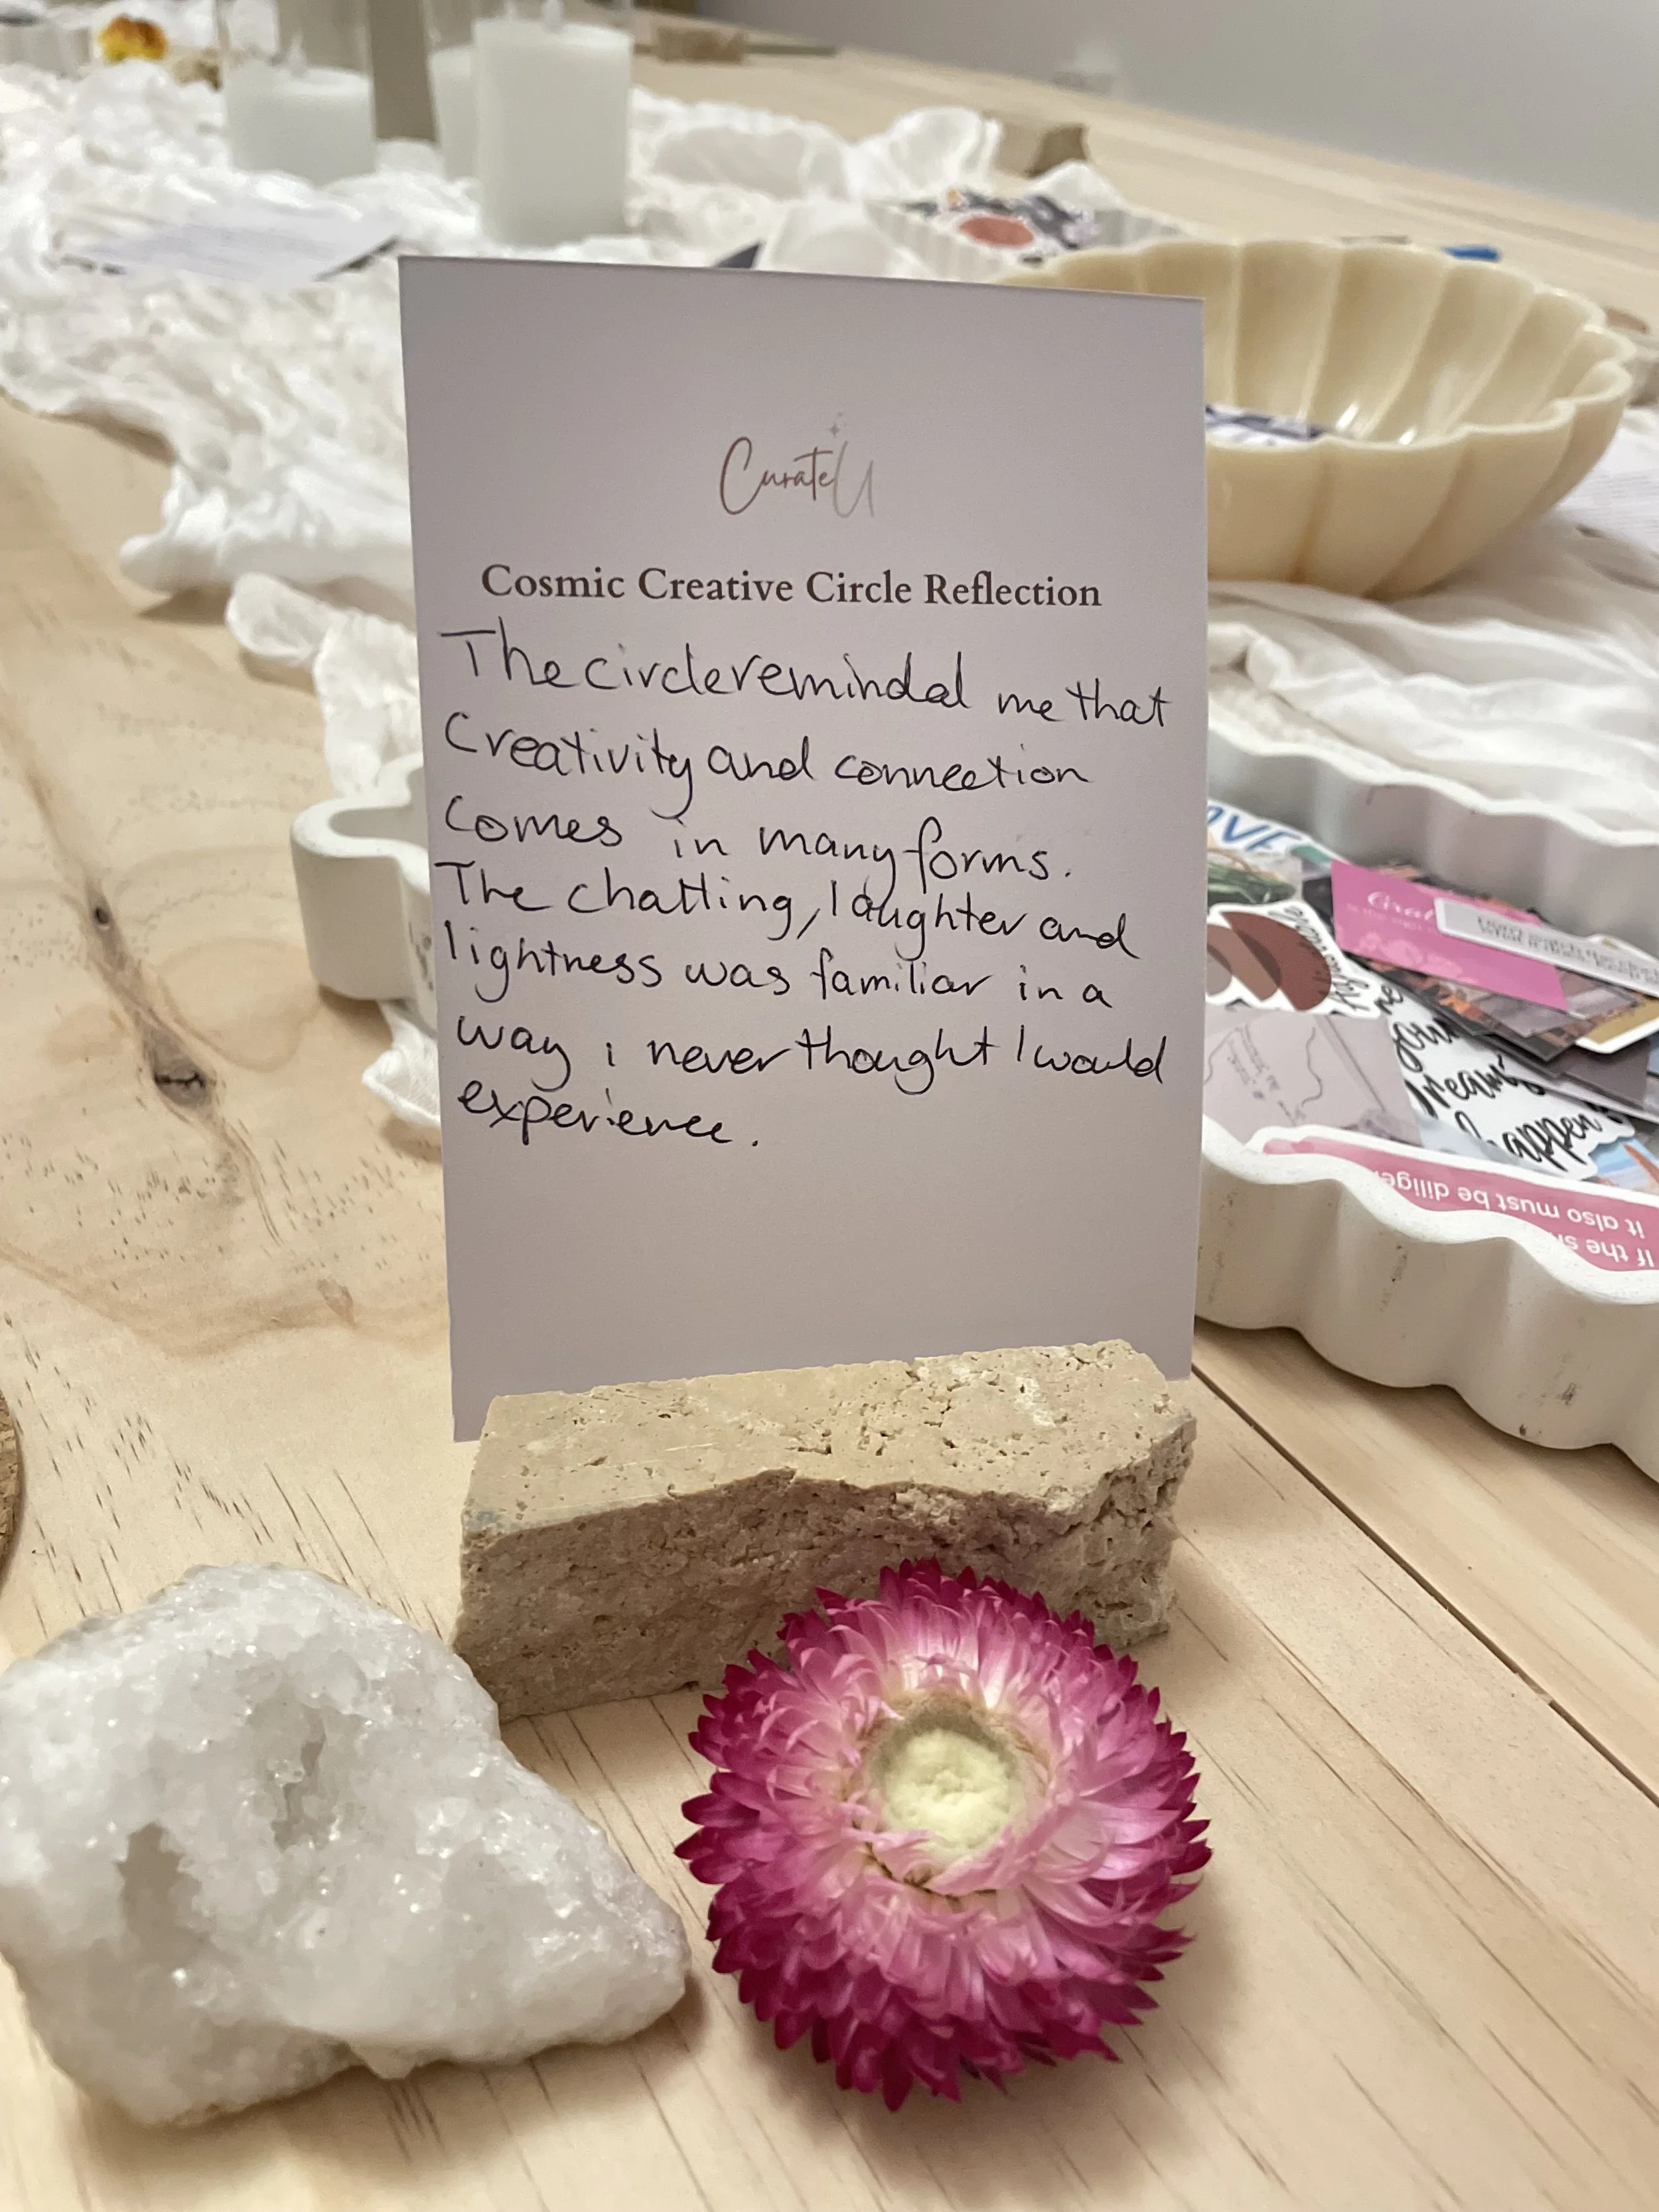 CurateU
Cosmic Creative Circle Reflection
The circle reminded me that
Creativity and connection
Comes in many forms.
The chatting, laughter and
lightness was familiar in a
way i never thought I would
experience.
your
dreams
happen
If the s
it also must be dilige